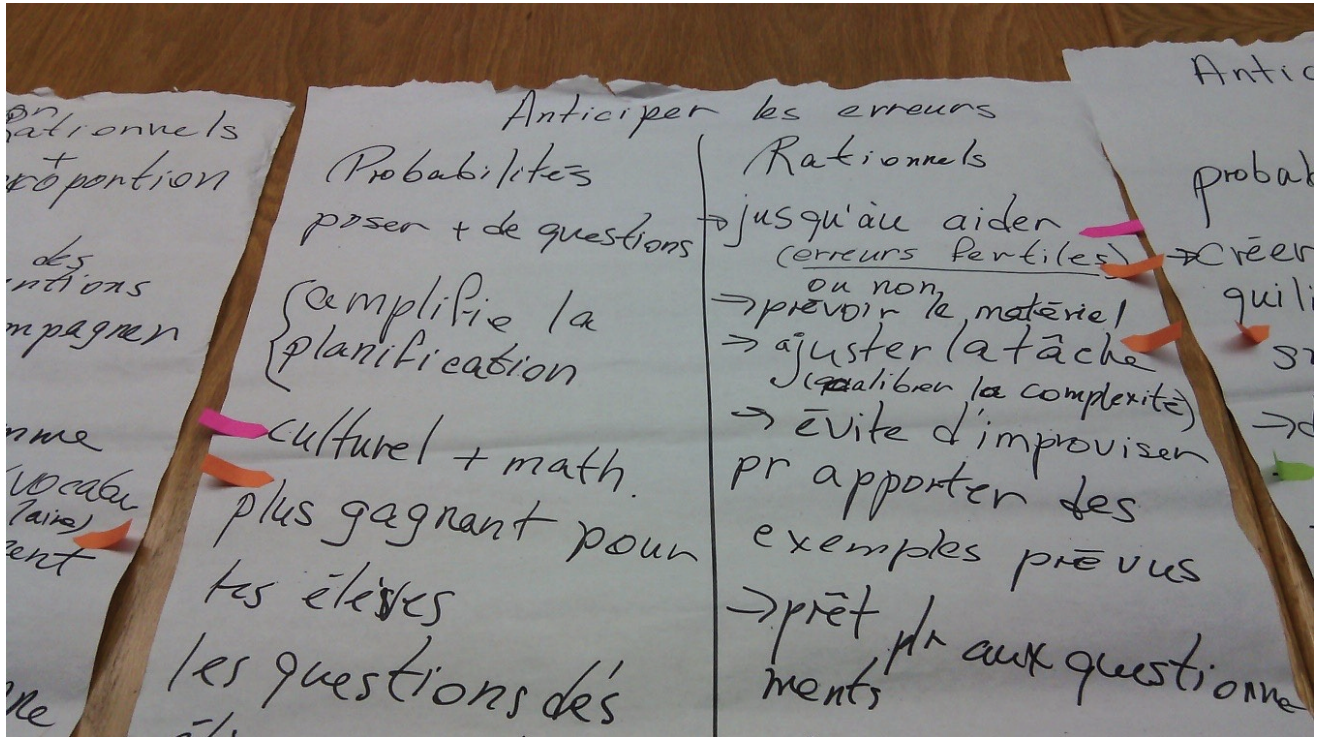 rationnels
+
proportion
des
mpagner
vocabu
laire)
Anticiper les erreurs
Probabilités
poser + de questions
amplifie la
planification
culturel + math.
plus gagnant pour
les élèves
les questions dés
Rationnels
→ jusqu'àu aider
(erreurs fertiles)
ou non
→ prévoir le matériel
→ ajuster la tâche
(qualibrer la complexité)
→ évite d'improviser
pr apporter des
exemples prévus
→ prêt pr aux questionne
ments
Antic
probab
→ créer